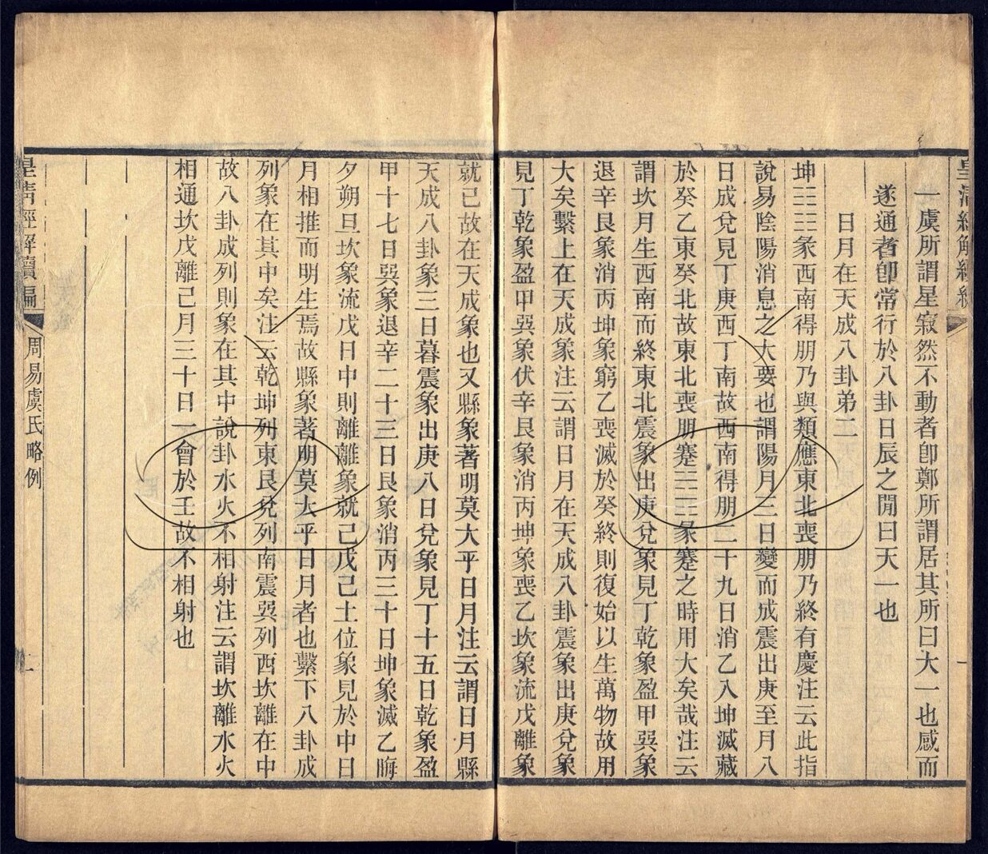 皇清經解續編
虞所謂星寂然不動者卽鄭所謂居其所曰大一也感而
遂通者卽常行於八卦日辰之閒曰天一也
日月在天成八卦弟二
坤☷☷彖西南得朋乃與類應東北喪朋乃終有慶注云此指
說易陰陽消息之大要也謂陽月三日變而成震出庚至月八
日成兌見丁庚西丁南故西南得朋二十九日消乙入坤滅藏
於癸乙東癸北故東北喪朋蹇☵☶彖蹇之時用大矣哉注云
謂坎月生西南而終東北震象出庚兌象見丁乾象盈甲巽象
退辛艮象消丙坤象窮乙喪滅於癸終則復始以生萬物故用
大矣繫上在天成象注云謂日月在天成八卦震象出庚兌象
見丁乾象盈甲巽象伏辛艮象消丙坤象喪乙坎象流戊離象
就己故在天成象也又縣象著明莫大乎日月注云謂日月縣
天成八卦象三日暮震象出庚八日兌象見丁十五日乾象盈
甲十七日巽象退辛二十三日艮象消丙三十日坤象滅乙晦
夕朔旦坎象流戊日中則離離象就己戊己土位象見於中日
月相推而明生焉故縣象著明莫大乎日月者也繫下八卦成
列象在其中矣注云乾坤列東艮兌列南震巽列西坎離在中
故八卦成列則象在其中說卦水火不相射注云謂坎離水火
相通坎戊離己月三十日一會於壬故不相射也
皇清經解續編
周易虞氏略例
二